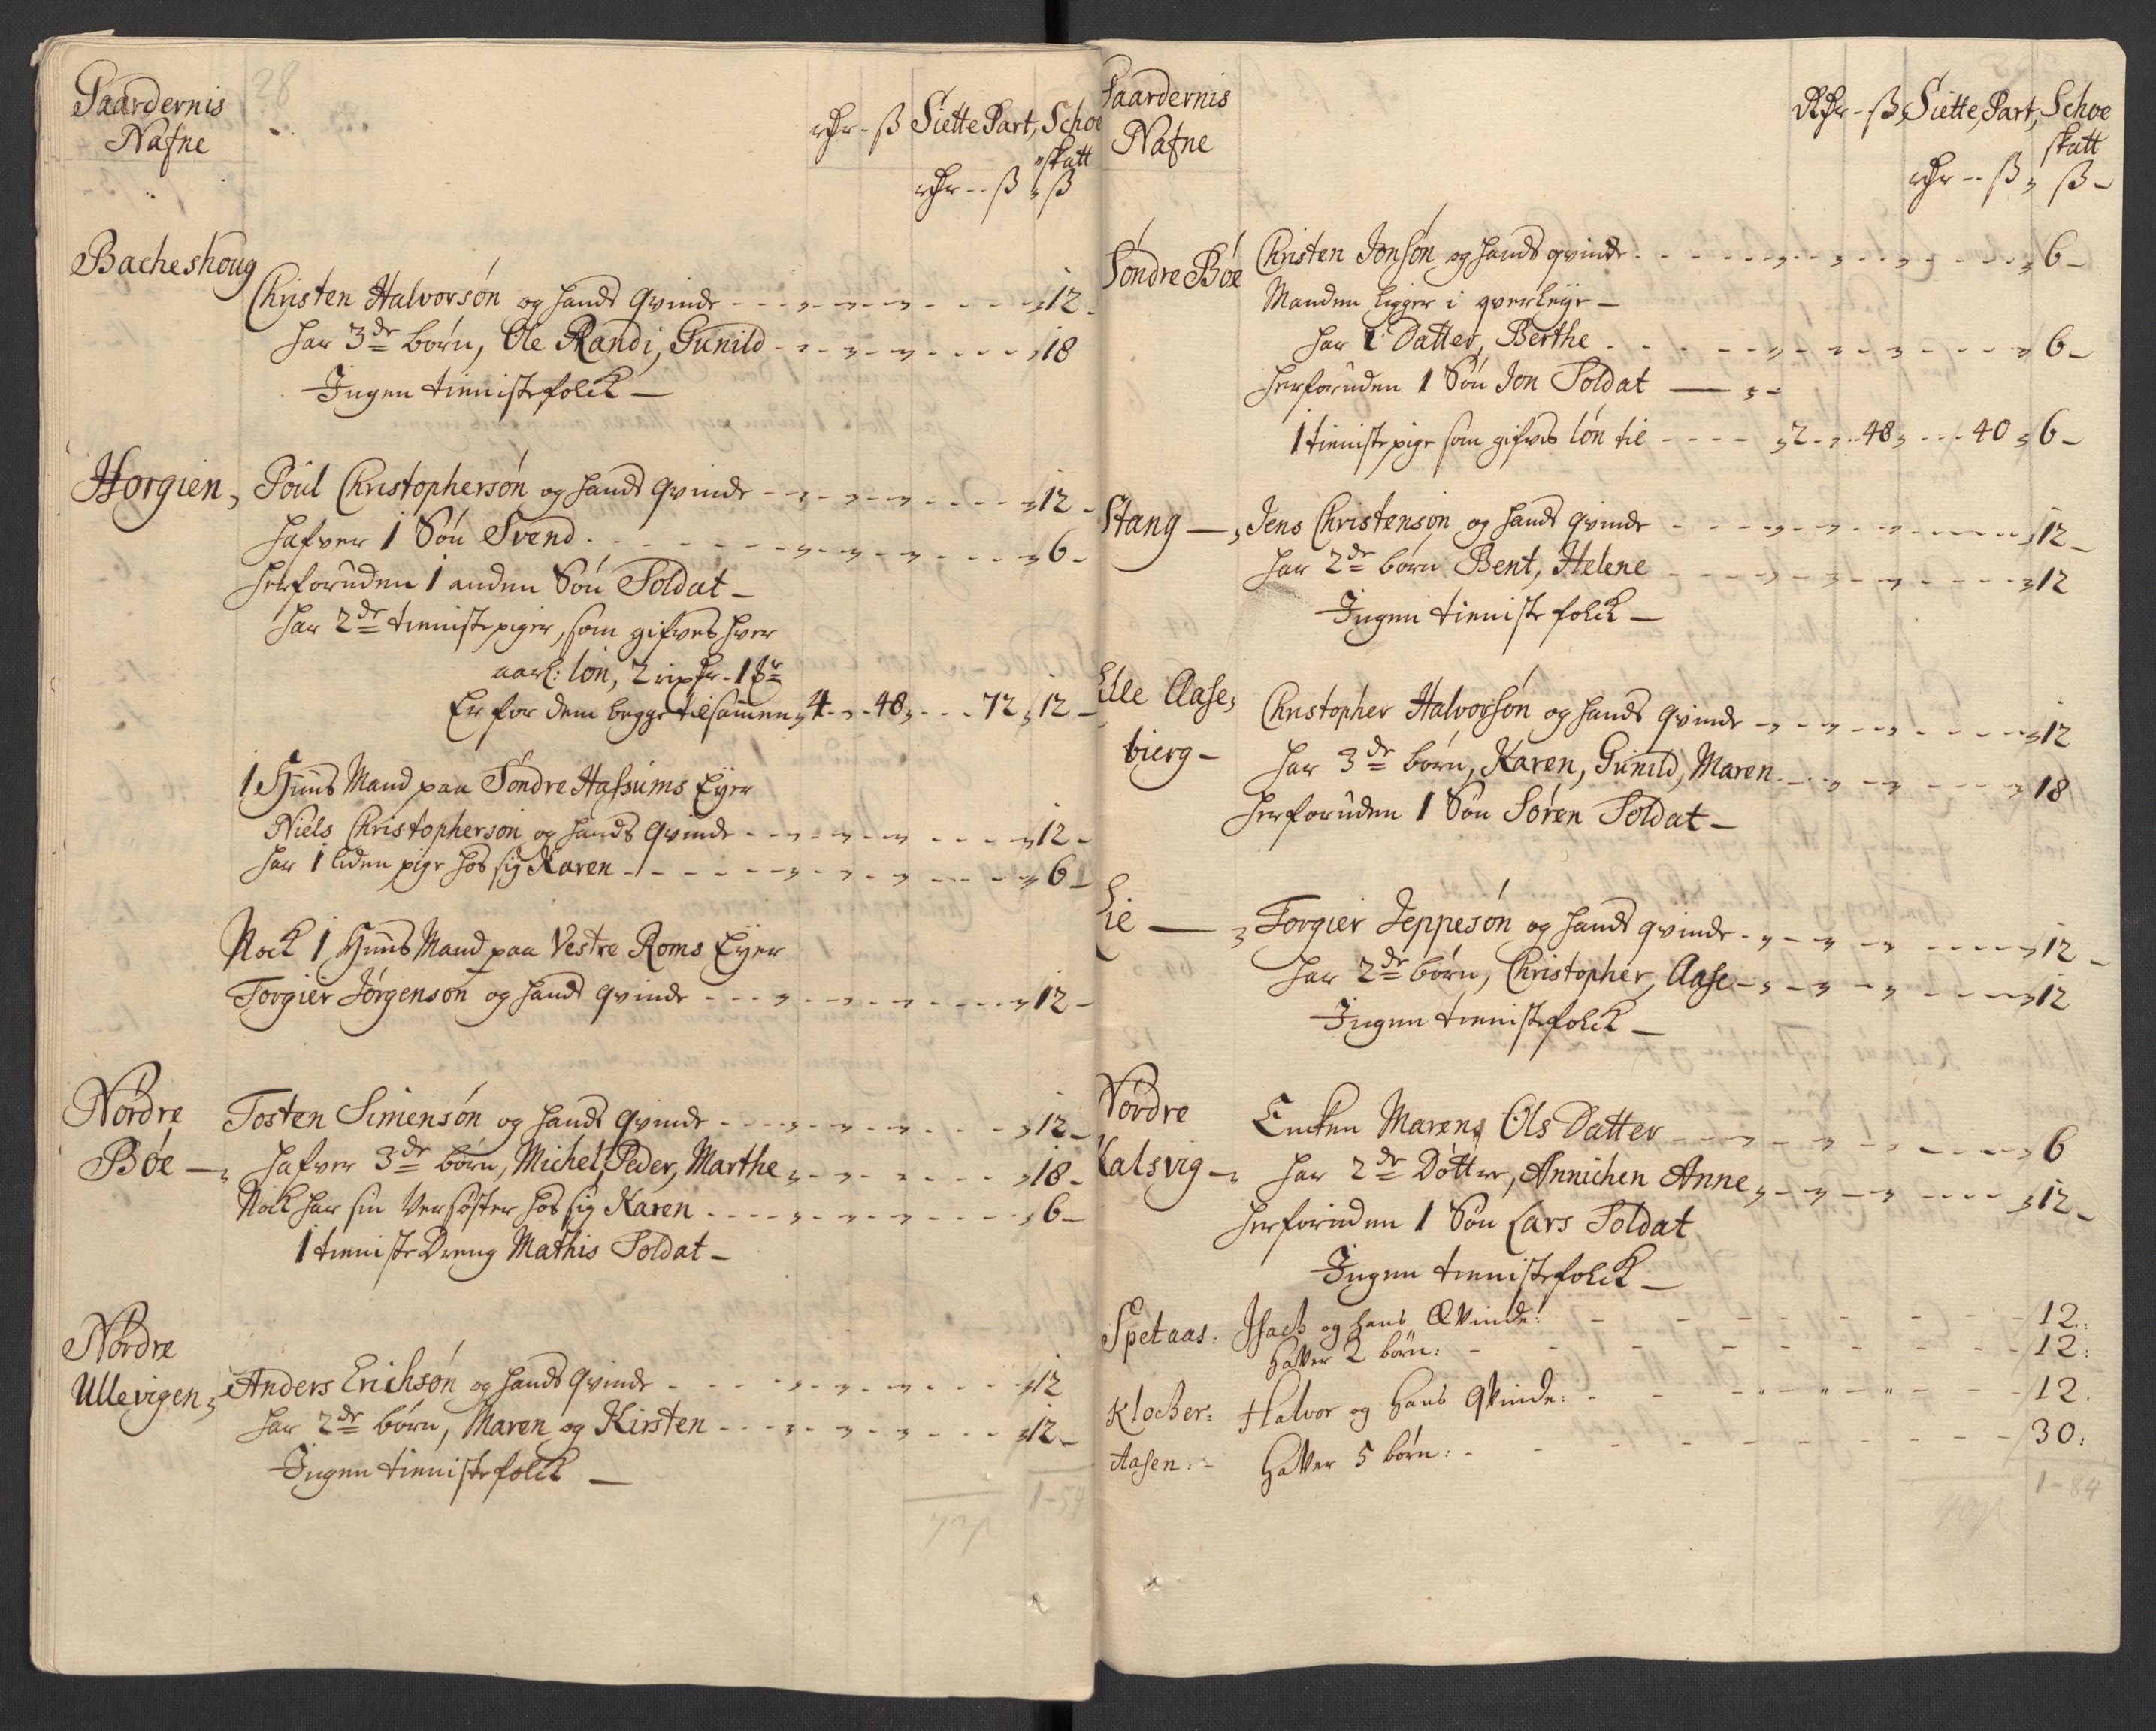 Gaardernis
Nafne
28
rdr - ß Siette Part, Schoe
skatt
rdr -- ß „ ß
Bacheshoug
Christen Halvorsón og hands qvinde - - - 12 -
har 3de børn, Ole Randi, Gunild - - - 18
Ingen tienistefolck -
Horgien, Póul Christophersón og hands qvinde - - - 12 -
hafver 1 Sön Svend - - - 6 -
herforuden 1 anden Sön Soldat -
har 2de tieniste piger, som gifves hver
aarl: lön, 2 rixdr - 1 
Er for dem begge tilsamen 4 - - 48 - - - 72, 12 -
1 Huus Mand paa Söndre Hafsums Eyer
Niels Christophersón og hands qvinde - - - 12 -
har 1 liden pige hos sig Karen - - - 6 -
Nock 1 Huus Mand paa Vestre Roms Eyer
Torgier Jörgensón og hands qvinde - - - 12 -
Nórdre
Bóe -
Tosten Simensón og hands qvinde - - - 12 -
hafver 3de børn, Michel, Peder, Marthe - - - 18 -
Nock har sin Versøster hos sig Karen - - - 6 -
1 tieniste Dreng Mathis Soldat -
Nórdre
Ullevigen, Anders Erichsón og hands qvinde - - - 12
har 2de børn, Maren og Kirsten - - - 12 -
Ingen tienistefolck -
1 - 54
Gaardernis
Nafne
Rdr - ß, Siette Part, Schoe
skatt
rdr -- ß „ ß -
Sóndre Bóe Christen Jonsón og hands qvinde - - - 6 -
Manden ligger i qverleye -
har 1 Datter, Berthe - - - 6 -
herforuden 1 Sön Jon Soldat -
1 tieniste pige som gifves lón til - - - 2 - - 48 - - - 40, 6 -
Stang -, Jens Christensón og hands qvinde - - - 12 -
har 2de børn Bent, Helene - - - 12
Ingen tieniste folck -
Lille Aase,
bierg -
Christopher Halvorsón og hands qvinde - - - 12
har 3de børn, Karen, Gunild, Maren - - - 18
herforuden 1 Sön Sóren Soldat -
Lie -, Torgier Jeppesón og hands qvinde - - - 12 -
har 2de børn, Christopher, Aase - - - 12
Ingen tienistefolck -
Nórdre
Kalsvig -
Encken Maren Ols Datter - - - 6
har 2de Döttre, Annichen Anne - - - 12 -
herforuden 1 Sön Lars Soldat
Ingen tienistefolck -
Spetaas: Isach og hans Qvinde: - - - 12:
haver 2 børn: - - - 12:
Klocker= Halvor og hans Qvinde: - - - 12.
Aasen: - haver 5 børn: - - - 30:
1 - 84